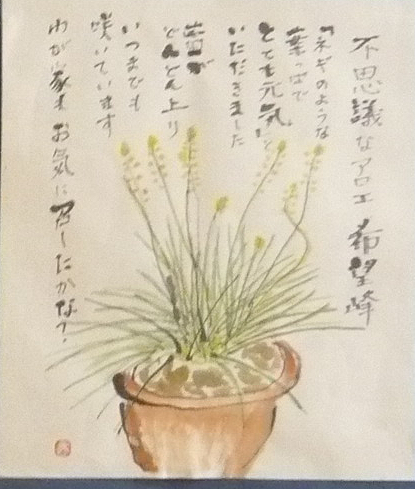 不思議なアロエ 希望峰
「ネギのような
葉っぱで
とても元気」と
いただきました
苗が
どんどん上り
いつまでも
咲いています
わが家を お気に召したかな?